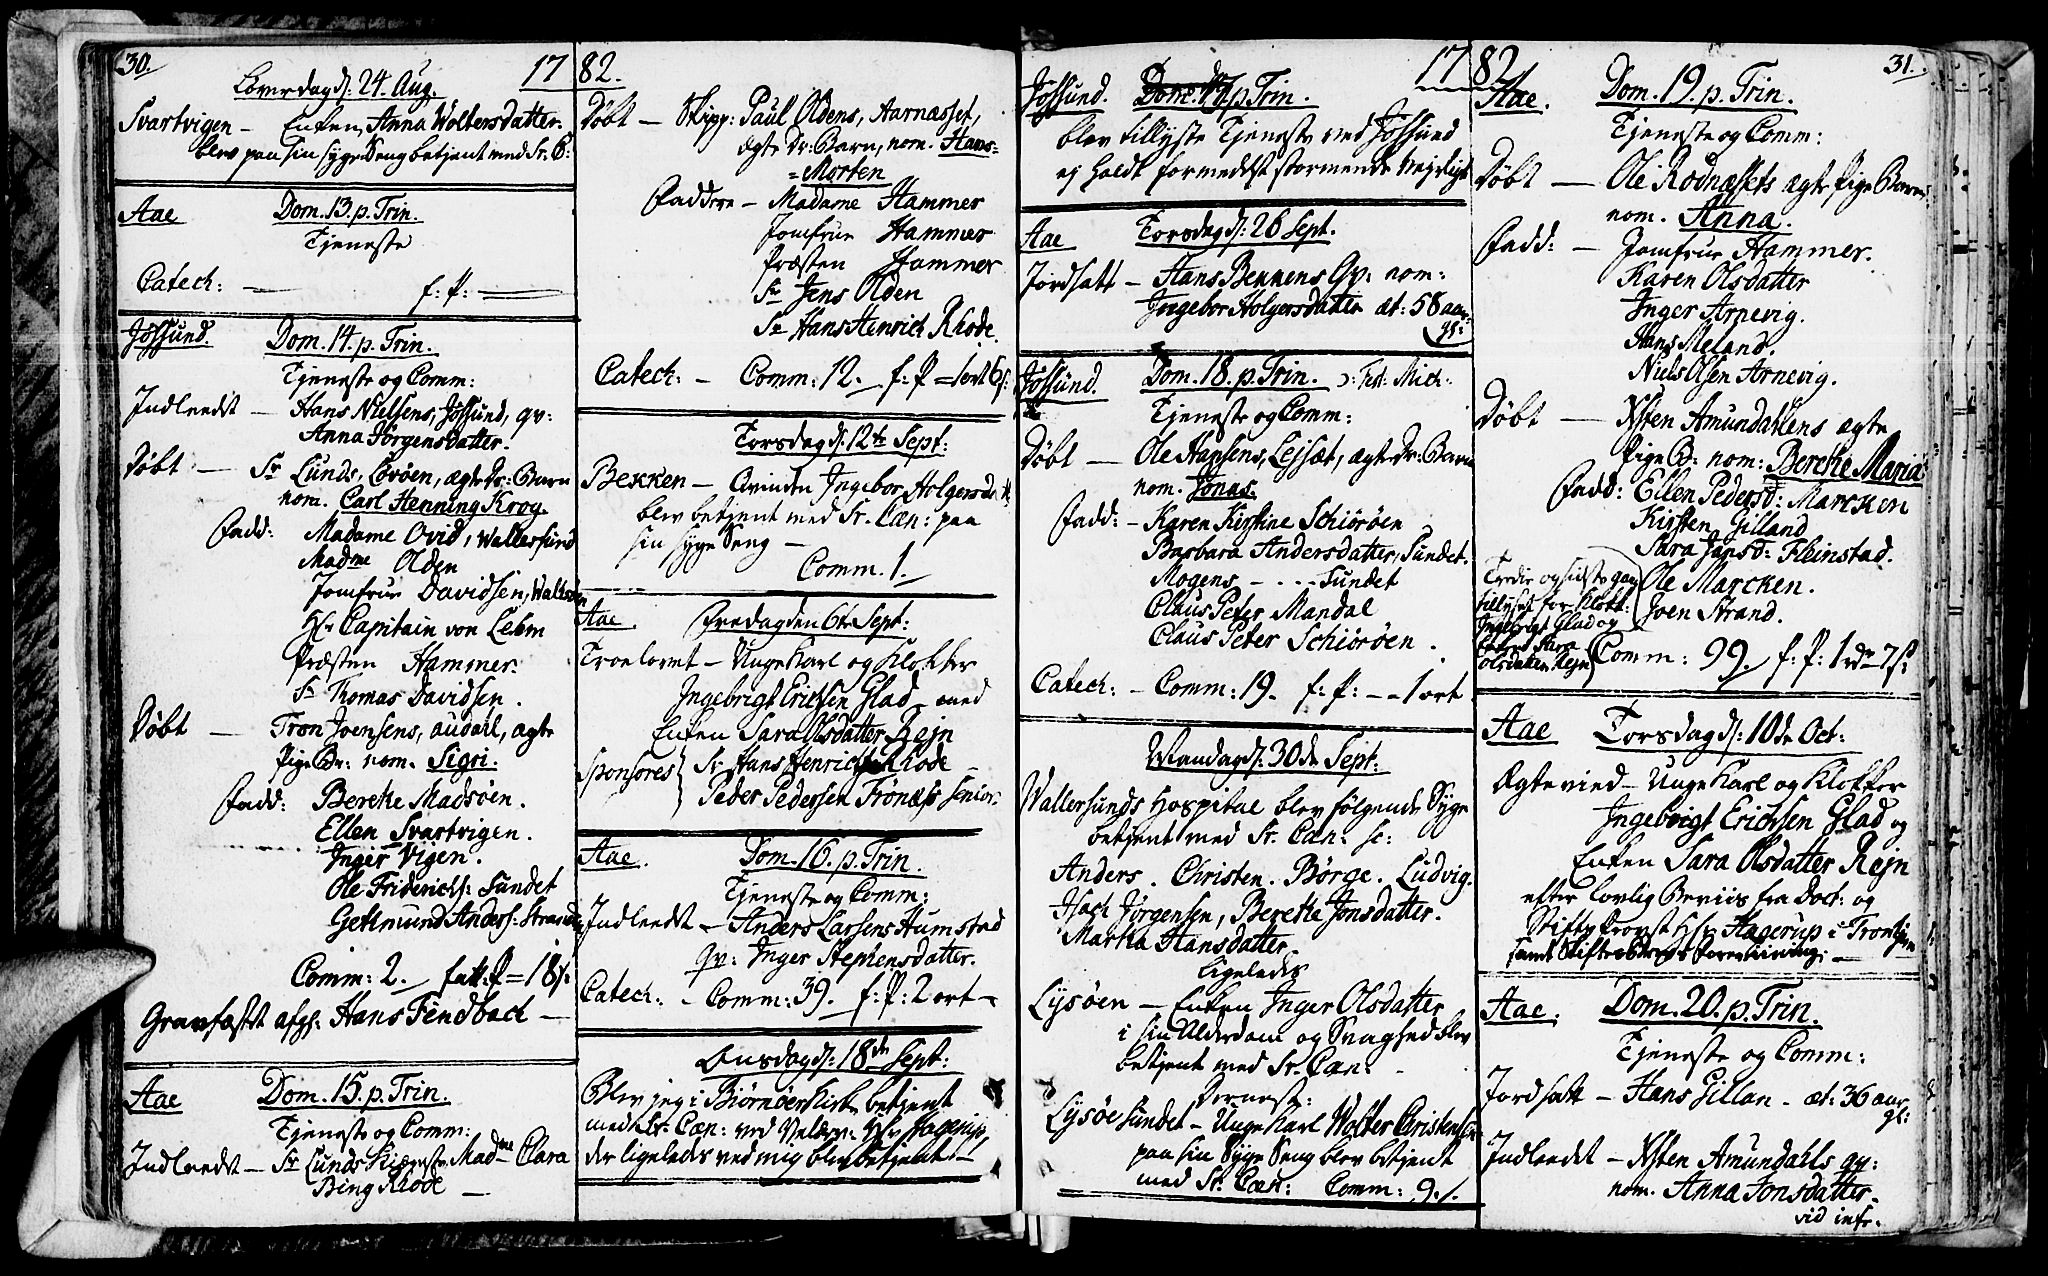 30.
17 82.
Löverdag d: 24. Aug.
Svartvigen – Enken Anna Woltersdatter
blev paa sin Syge Seng betjent med Sr. C:
Aae Dom. 13. p. Trin.
Tjeneste
Catech: — f: P: —
Jössund. Dom. 14. p. Trin.
Tjeneste og Comm:
Indleedt – Hans Nielsens, Jössund, qv:
Anna Jörgensdatter.
Döbt – Sr Lunds, Lovöen, ægte Dr: Barn
nom. Carl Henning Krog.
Fadd: Madame Ovid, Wallersund
Madme Olden
Jomfrue Davidsen,
Hr Capitain von Lebm
Præsten Hammer.
Sr Thomas Davidsen.
Döbt – Tron Joensens, audael, ægte
Pige Br: nom. Sigri.
Fadd: Berethe Madsöen.
Ellen Svartvigen.
Inger Vigen.
Ole Friderichs: Sundet
Gettmund Anders: Strand
Comm: 2. fatt: P = 18 s:
Gravfæstet afg: Hans Fendbach –
Aae Dom. 15. p. Trin.
Tjeneste og Comm:
Indleedt – Sr Lunds Kiæreste Madme Clara
Bing Rhode –
Döbt – Skipp: Paul Oldens, Aarnæsset,
ægte Dr: Barn, nom. Hans=
=Morten
Faddere – Madame Hammer
Jomfrue Hammer
Præsten Hammer
Sr Jens Olden
Sr Hans Henrich Rhode.
Catech: – Comm: 12. f: P = 1 ort 6 s:
Torsdag d: 12te Sept:
Bekken – Qvinden Ingebor Holgersd:
blev betjent med Sr. Cæn: paa
sin Syge Seng –
Comm. 1.
Aae. Fredag den 6te Sept:
Troelovet – Unge Karl og Klokker
Ingebrigt Erichsen Glad – med
Enken Sara Olsdatter Rejn
Sponsores Sr Hans Henrich Rhode –
Peder Pedersen Frönæss senior.
Aae. Dom. 16. p. Trin.
Tjeneste og Comm:
Indleedt – Anders Larsens Humstad
qv: Inger Stephensdatter.
Catech: – Comm: 39. f: P: 2 ort –
Onsdag d: 18de Sept:
Blev jeg i Biörnöer Kirke betjent
med Sr: Cæn: ved Velærv: Hr Hagerup
der ligeledes ved mig blev betjent –
17 82. 31.
Jössund. Dom. 17. p. Trin.
blev tillyste Tjeneste ved Jössund
ej holdt formedelst stormende Vejrligt
Aae Torsdag d: 26 Sept.
Jordsatt – Hans Bennens Qv: nom:
Ingebor Holgersdatter æt: 58 aar
gl:
Jössund. Dom. 18. p. Trin. ɔ: Fest: Mich:
Tjeneste og Comm:
Döbt – Ole Hansens, Lejsæt, ægte Dr: Barn
nom. Jonas.
Fadd: – Karen Kirstine Schiöröen
Barbara Andersdatter, Sundet.
Mogens – . . . Sundet
Claus Peter Mandal
Claus Peter Schiöröen.
Catech: – Comm: 19. f: P: – – 1 ort
Mandag d: 30de Sept:
Wallersunds Hospital blev fölgende Syge
betjent med Sr. Cæn: sc:
Anders. Christen. Börge. Ludvig.
Isach Jörgensen, Berethe Jonsdatter.
Martha Hansdatter.
Ligeledes
Lysöen – Enken Inger Olsdatter
i sin Alderdom og Svaghed blev
betjent med Sr. Cæn:
Dernest:
Lysöesundet – Unge Karl Wolter Christensen
paa sin Syge Seng blev betjent
med Sr. Cæn: Comm: 9.
Aae. Dom. 19. p. Trin.
Tjeneste og Comm:
Döbt – Ole Rödnæssets ægte Pige Barn
nom. Anna.
Fadd: – Jomfrue Hammer.
Karen Olsdatter
Inger Arnevig.
Hans Meland.
Niels Olsen Arnevig.
Döbt – Østen Amundahlens ægte
Pige Br: nom: Berethe Maria
Fadd: Ellen Pedersd: Marcken
Kirsten Gilland
Sara Jansd: Fleinstad.
Ole Marcken.
Joen Strand.
Tredie og sidste gang
tillyset for Klokk:
Ingebrigt Glad og
Enken Sara
Olsdatter Rejn
Comm: 99. f: P: 1 rdr 7 s:
Aae Torsdag d: 10de Oct:
Ægtevied – Unge Karl og Klokker
Ingebrigt Erichsen Glad og
Enken Sara Olsdatter Rejn
efter lovlig Beviis fra Doct: og
Stifts Provst Hr Hagerup i Tronhiem
Aae. Dom. 20. p. Trin.
Tjeneste og Comm:
Jordsatt – Hans Gillan – æt: 36 aar
gl:
Indleedt – Østen Amundahls qv:
nom. Anna Jonsdatter.
vid infr.